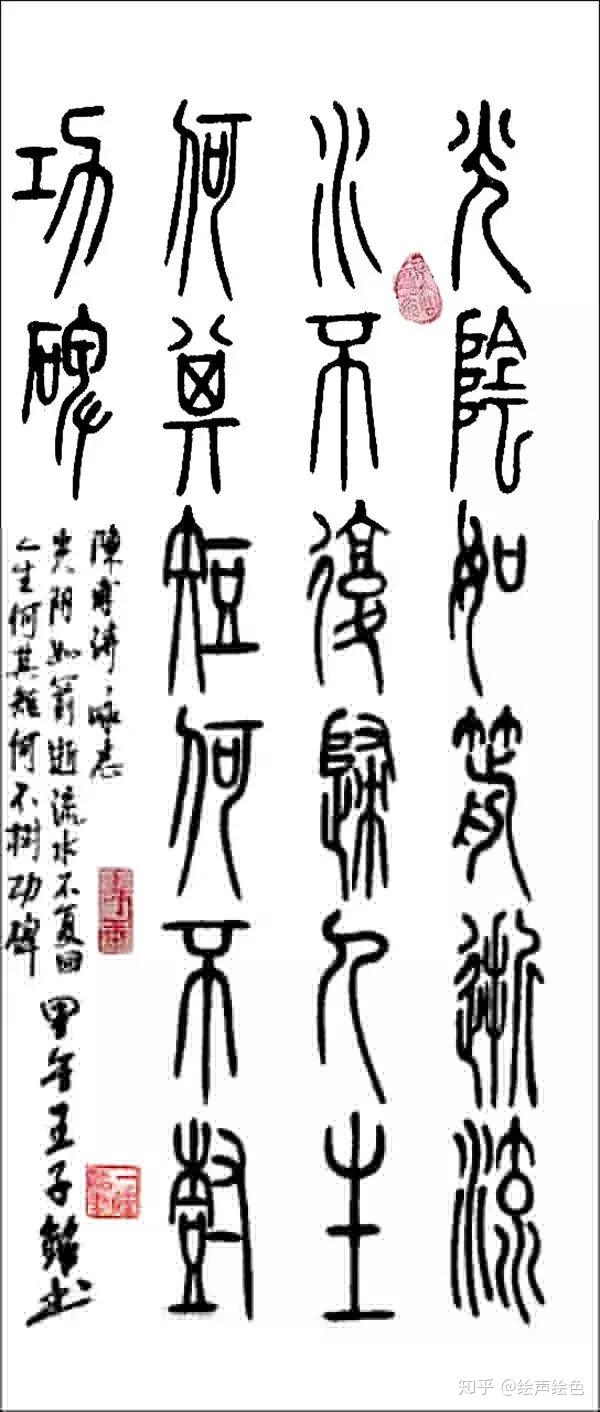 光陰如箭逝流
水不復歸人生
何其短何不樹
功碑
陳濤詠志
光阴如箭逝流水不复回
人生何其短何不樹功碑
甲午王子书
知乎 @绘声绘色